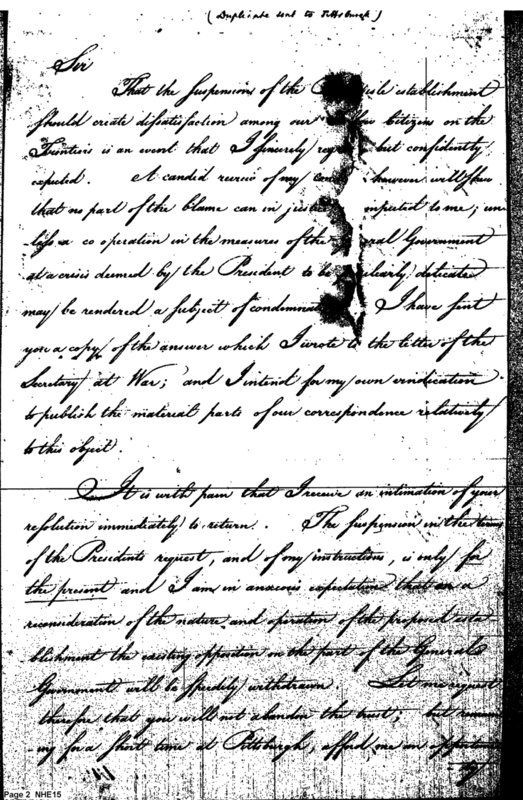 (Duplicate sent to Pittsburgh)
Sir
That the Suspension of the isle establishment
should create dissatisfaction among our Citizens on the
Frontiers is an event that I sincerely but confidently
expected. A candid review of my however will shew
that no part of the blame can in imputed to me; un
less a co operation in the measures of the ral Government
at a crisis deemed by the President to be delicate
may be rendered a subject of I have sent
you a copy of the answer which I wrote to the letter of the
Secretary at War; and I intend for my own vindication
to publish the material parts of our correspondence relatively
to this object.
It is with pain that I receive an intimation of your
resolution immediately to return. The suspension in the terms
of the Presidents request, and of my instructions, is only for
the present and I am in anxious expectation that on a
reconsideration of the nature and operation of the proposed esta-
blishment the existing opposition on the part of the General
Government will be speedily withdrawn. Let me request
therefore that you will not abandon the trust; but remain
ing for a short time at Pittsburgh, afford me an
Page 2 NHE15